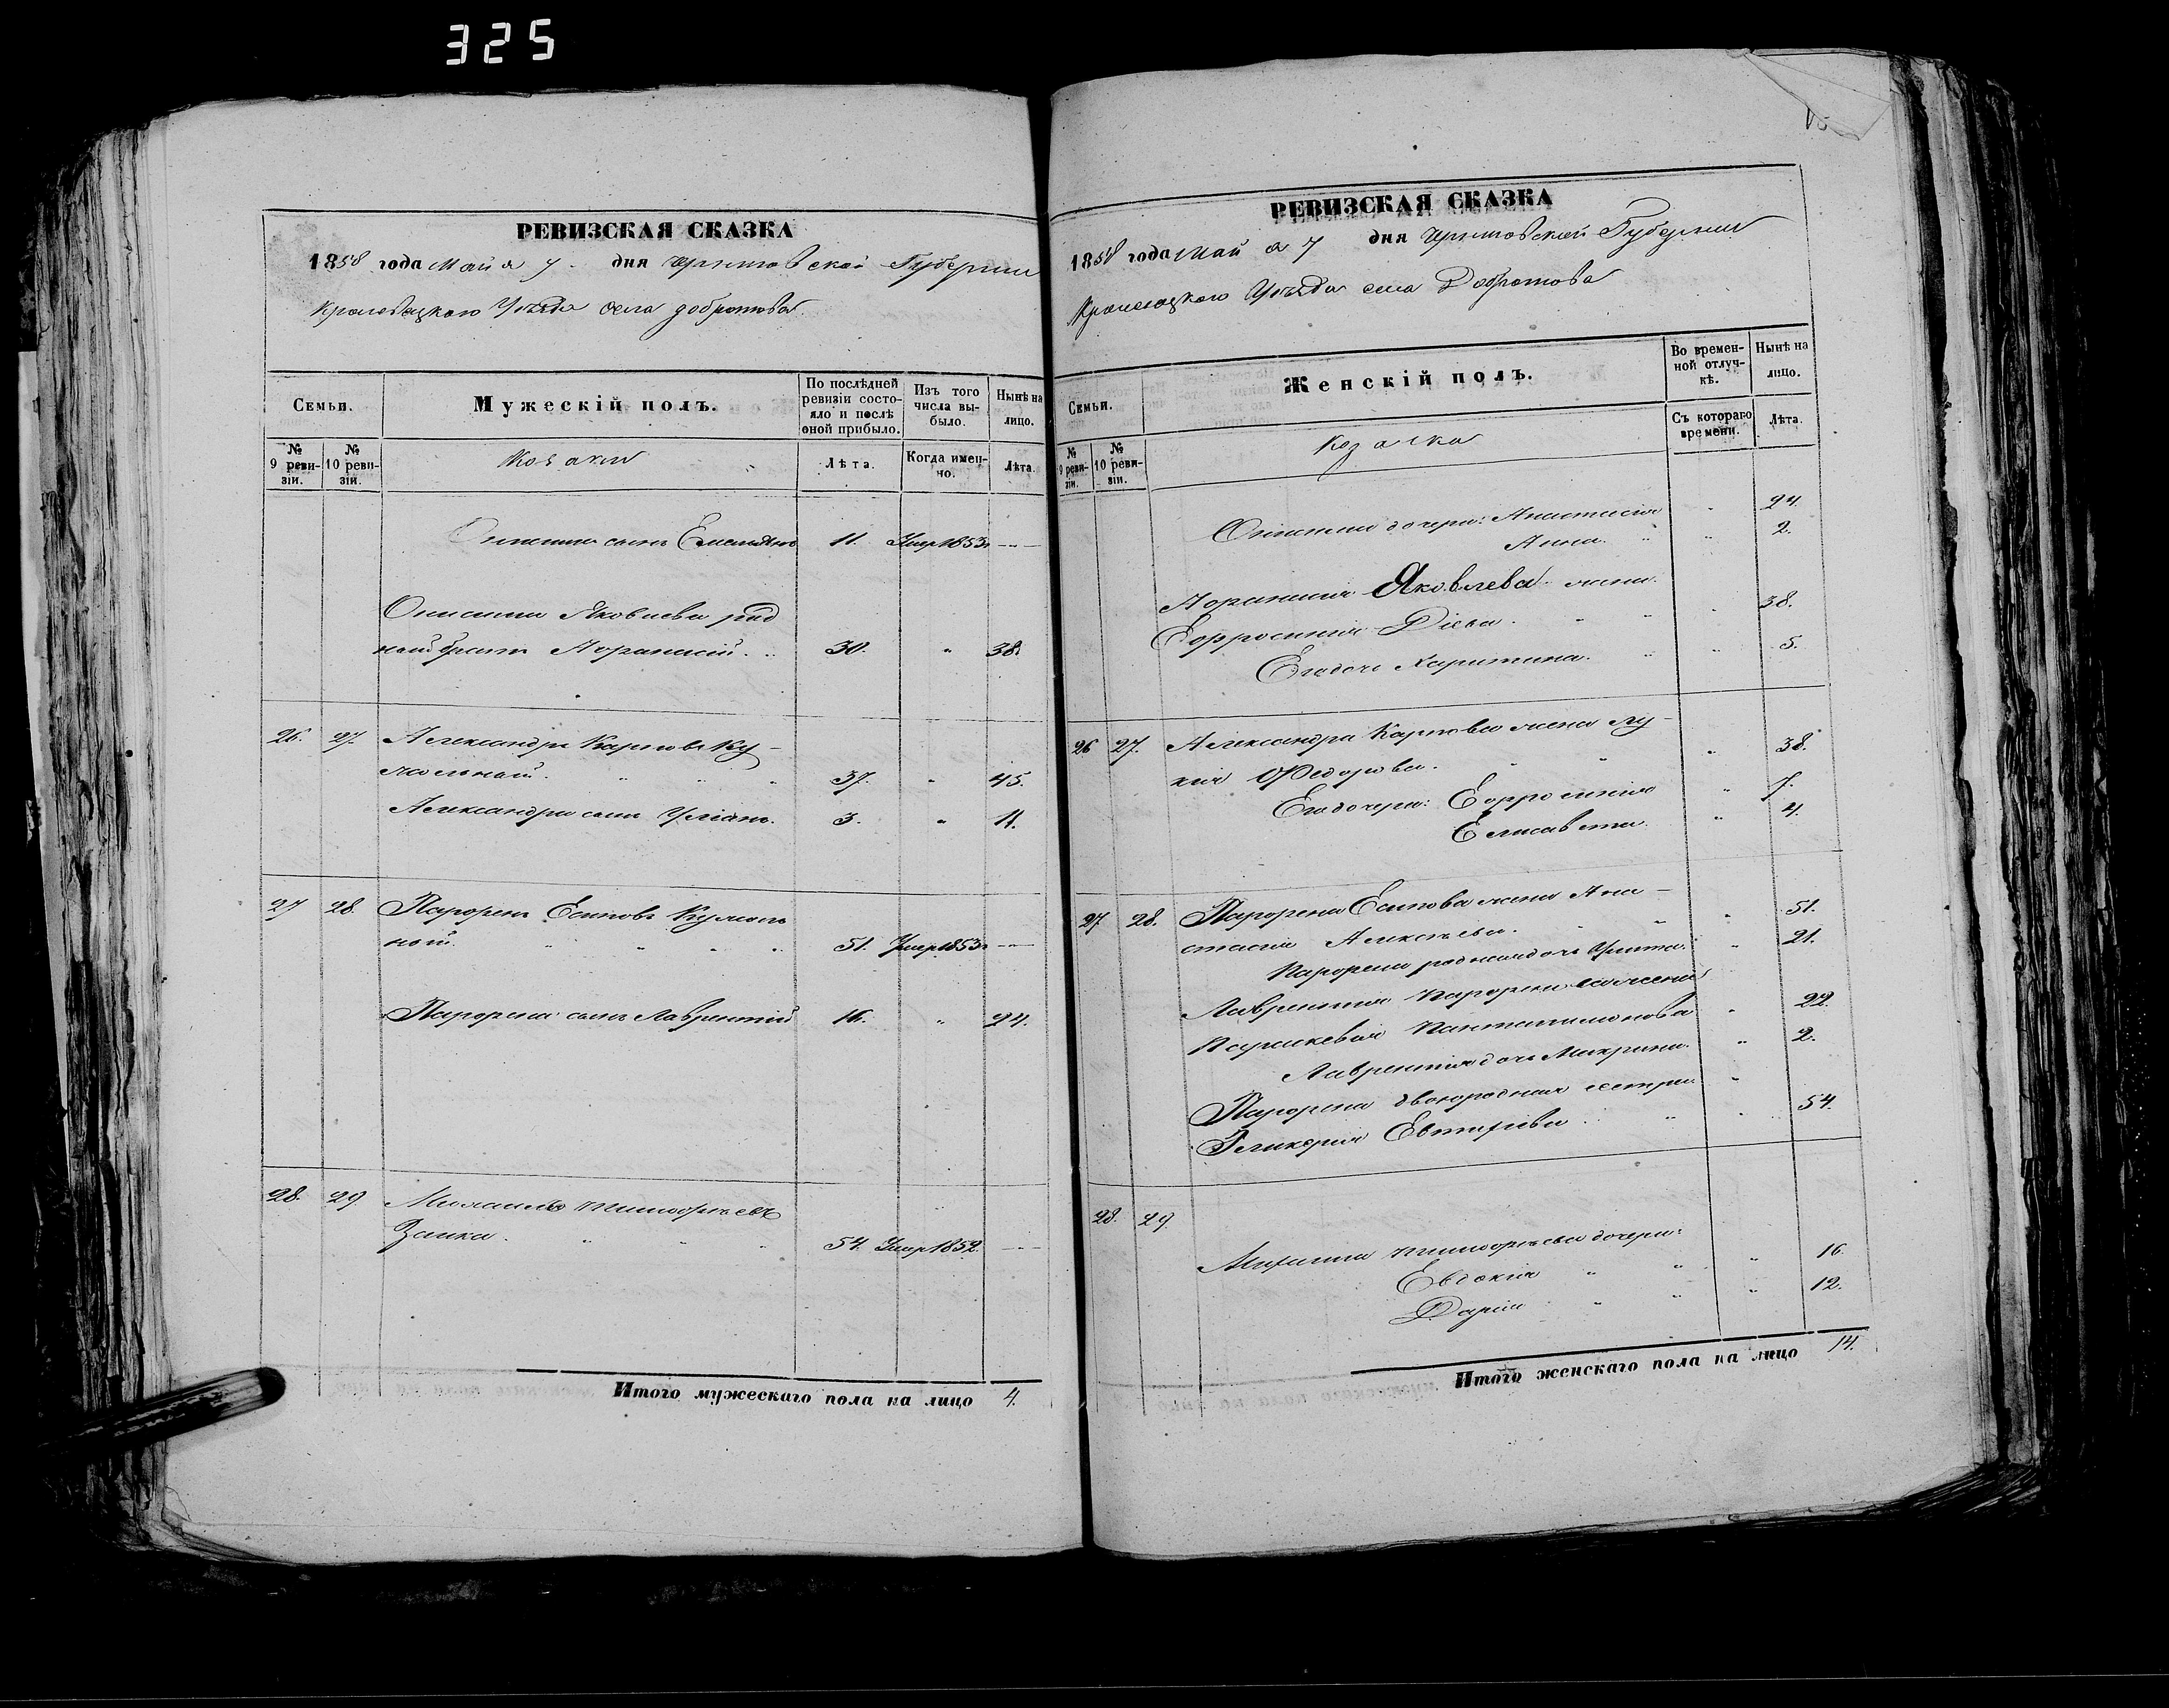 325
РЕВИЗСКАЯ СКАЗКА
1858 года Мая 7 дня Черниговской Губернии
Кролевецкаго Уѣзда села Добротова
Семьи.
Мужескій полъ.
По послѣдней ревизіи состояло и послѣ оной прибыло.
Изъ того числа выбыло.
Нынѣ на лицо.
№ 9 ревизіи.
№ 10 ревизіи.
Козаки
Лѣта.
Когда именно.
Лѣта.
Онисима сынъ Емельянъ 11. Умер 1853г
Онисима Яковлева род
ной братъ Афанасій 30. " 38.
26. 27. Александръ Карповъ Ку-
мольной. 37. " 45.
Александра сынъ Уліанъ. 3. " 11.
27 28. Парфенъ Есиповъ Кумоль
ной. 51. Умер 1853г
Парфена сынъ Лаврентій 16. " 24.
28. 29. Михаилъ Тимофѣевъ
Заика. 54. Умер 1852.
Итого мужескаго пола на лицо 4.
РЕВИЗСКАЯ СКАЗКА
1858 года Мая 7 дня Черниговской Губернии
Кролевецкаго Уѣзда села Добротова
Семьи.
Женскій полъ.
Во временной отлучкѣ.
Нынѣ на лицо.
№ 9 ревизіи.
№ 10 ревизіи.
Козачки
Съ котораго времени.
Лѣта.
Онисима дочери: Анастасія " 24.
Анна. " 2.
Афанасия Яковлева жена
Ефросинія 38.
Его дочь Харитина. " 5.
26 27. Александра Карпова жена Лу-
кия Федорова. " 38.
Его дочери: Ефросинія " 7.
Елисавета. " 4.
27. 28. Парфена Есипова жена Ана-
стасія Алексѣева. " 51.
Парфена родная дочь " 21.
Лаврентия Парфенова жена
Параскевія Пантелимонова " 22.
Лаврентія дочь Макрина. " 2.
Парфена двоюродная сестра
Гликерія Евтифіева " 54.
28. 29.
Михаила Тимофѣева дочери:
Евдокія " 16.
Дарія " 12.
Итого женскаго пола на лицо 14.